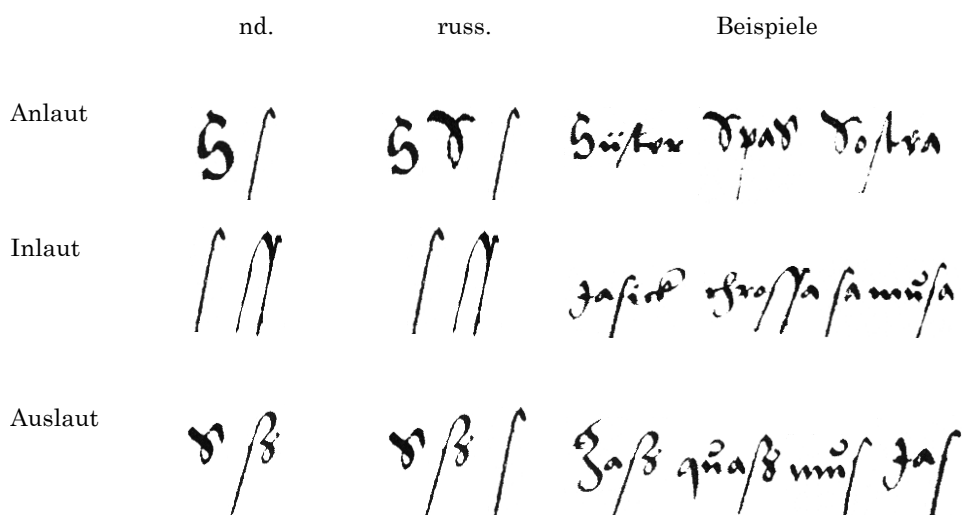 nd. russ. Beispiele
Anlaut S ſ S S ſ Süster Spas Sostra
Inlaut ſ ſſ ſ ſſ Jaſick chroſſa ſamuͦſa
Auslaut s ß s ß ſ Zaß quaß muſ Jaſ